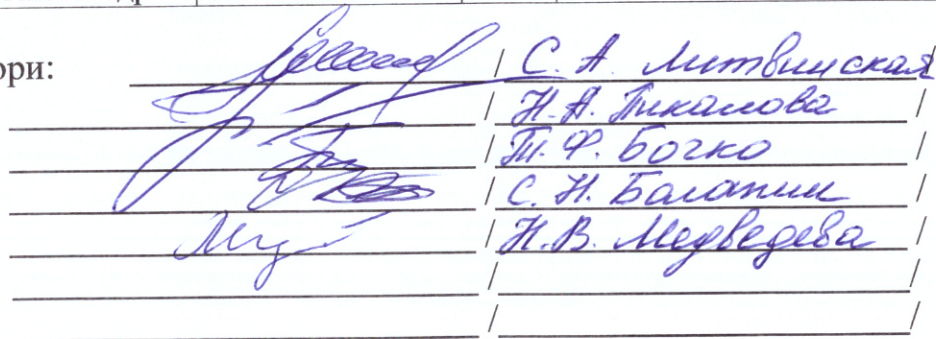 ори: / С. А. Литвинская /
/ Н. А. Пикалова /
/ Т. Ф. Бочко /
/ С. Н. Балагин /
/ Н. В. Медведева /
/ /
/ /